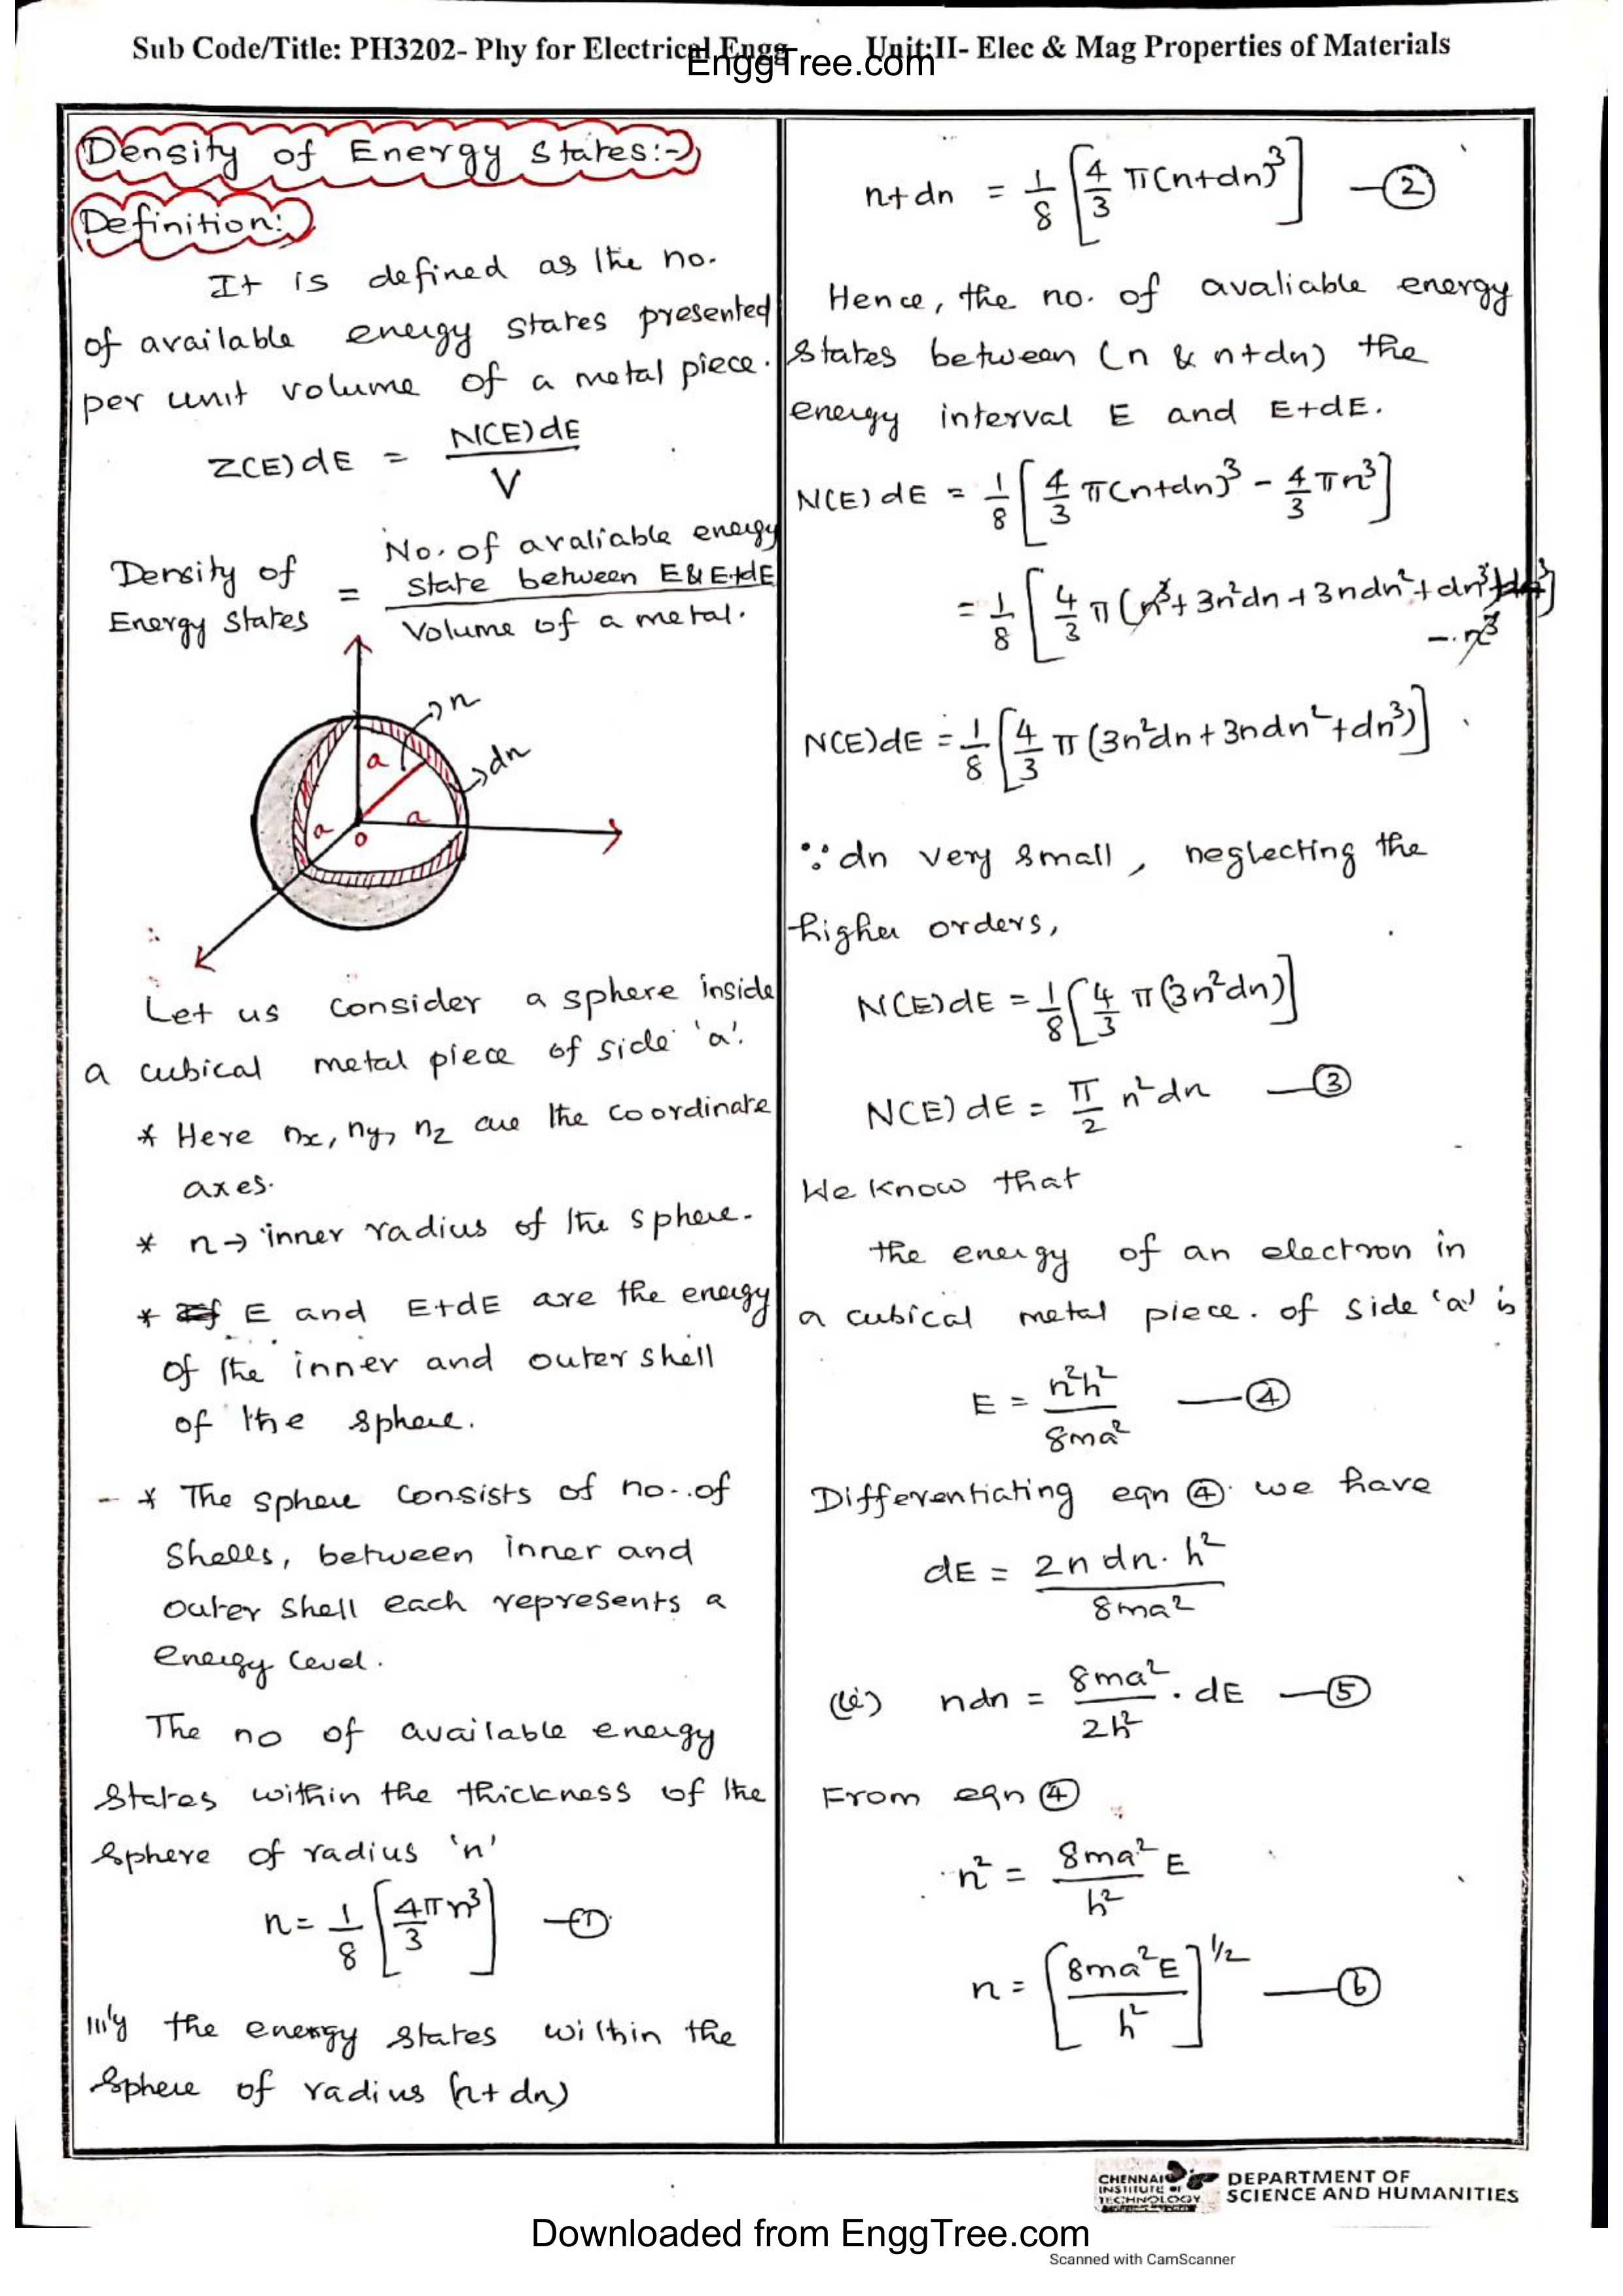 Sub Code/Title: PH3202- Phy for Electrical Engg Unit:II- Elec & Mag Properties of Materials
EnggTree.com
Density of Energy States:-
Definition:
It is defined as the no.
of available energy states presented
per unit volume of a metal piece.
Z(E)dE = N(E)dE / V
Density of Energy States = No. of avaliable energy state between E & E+dE / Volume of a metal.
n
dn
a
a
a
o
Let us consider a sphere inside
a cubical metal piece of side 'a'.
* Here nx, ny, nz are the coordinate
axes.
* n → inner radius of the sphere.
* E and E+dE are the energy
of the inner and outer shell
of the sphere.
- * The sphere consists of no. of
shells, between inner and
outer shell each represents a
energy level.
The no of available energy
states within the thickness of the
sphere of radius 'n'
n = 1/8 [4πn³/3] —①
|||'y the energy states within the
sphere of radius (n+dn)
n+dn = 1/8 [4/3 π(n+dn)³] —②
Hence, the no. of avaliable energy
states between (n & n+dn) the
energy interval E and E+dE.
N(E)dE = 1/8 [4/3 π(n+dn)³ - 4/3 πn³]
= 1/8 [4/3 π(n³+3n²dn+3ndn²+dn³
- n³
N(E)dE = 1/8 [4/3 π(3n²dn+3ndn²+dn³)]
∵ dn very small, neglecting the
higher orders,
N(E)dE = 1/8 [4/3 π(3n²dn)]
N(E)dE = π/2 n²dn —③
We know that
the energy of an electron in
a cubical metal piece. of side 'a' is
E = n²h²/8ma² —④
Differentiating eqn ④ we have
dE = 2ndn.h²/8ma²
(ie) ndn = 8ma²/2h² . dE —⑤
From eqn ④
n² = 8ma²/h² E
n = [8ma²E/h²]^1/2 —⑥
CHENNAI
INSTITUTE OF
TECHNOLOGY
DEPARTMENT OF
SCIENCE AND HUMANITIES
Downloaded from EnggTree.com
Scanned with CamScanner